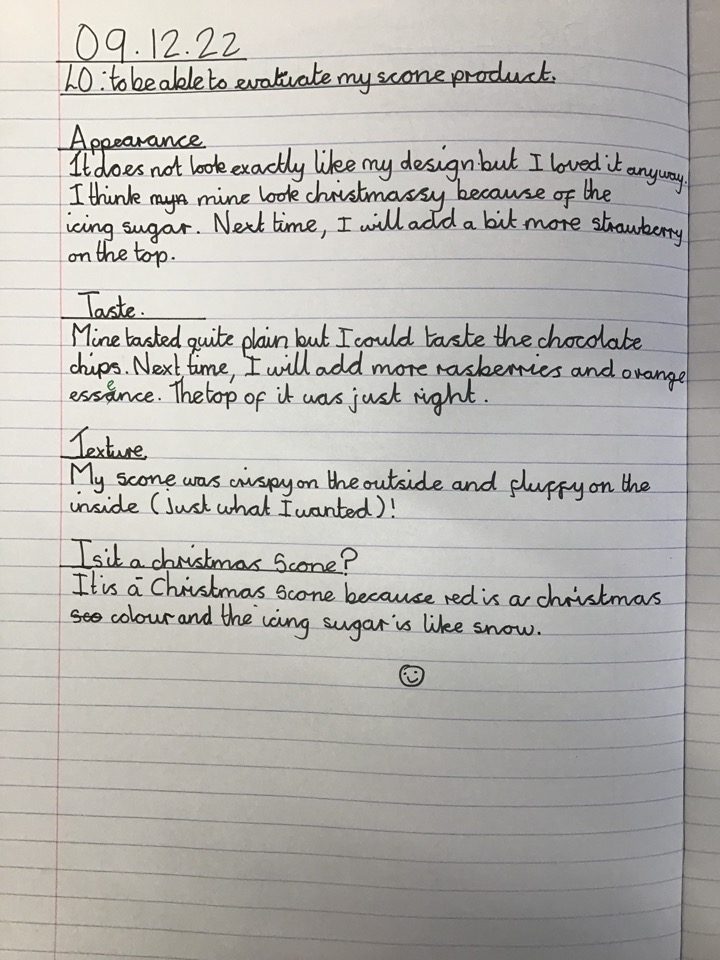 09.12.22
LO: to be able to evaluate my scone product.
Appearance
It does not look exactly like my design but I loved it anyway.
I think mine look christmassy because of the
icing sugar. Next time, I will add a bit more strawberry
on the top.
Taste.
Mine tasted quite plain but I could taste the chocolate
chips. Next time, I will add more rasberries and orange
essence. The top of it was just right.
Texture
My scone was crispy on the outside and fluffy on the
inside (just what I wanted)!
Is it a christmas Scone?
It is a Christmas scone because red is a christmas
colour and the icing sugar is like snow.